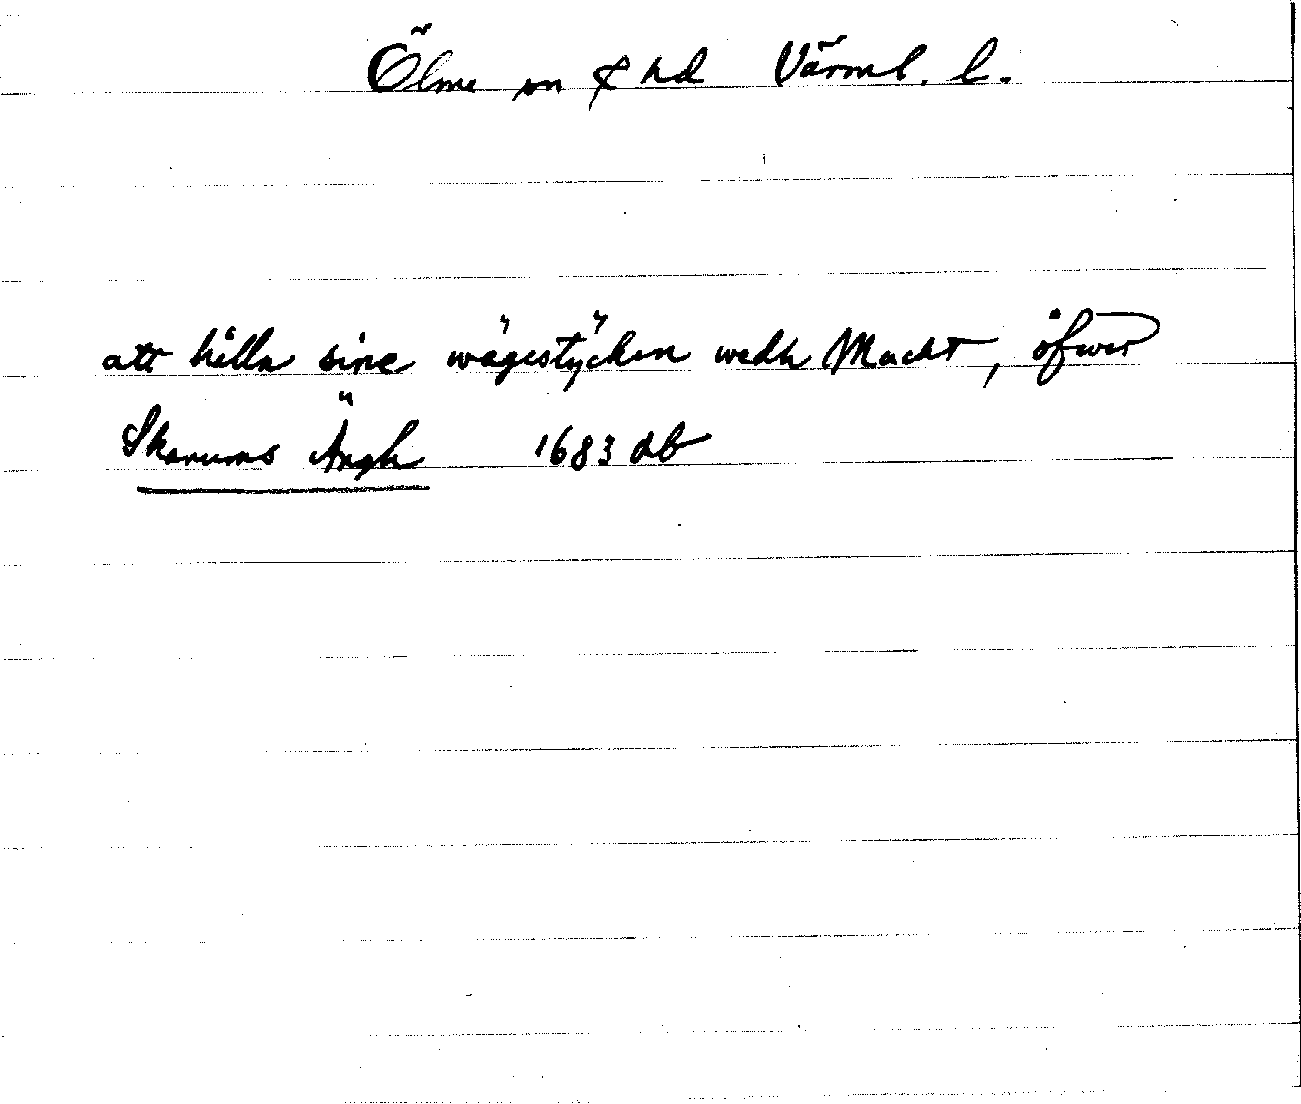 Ölme sn & hd Värml. l.
att hålla sine wägestÿcken wedh Macht, öfwer
Skarums Ängh 1683 db